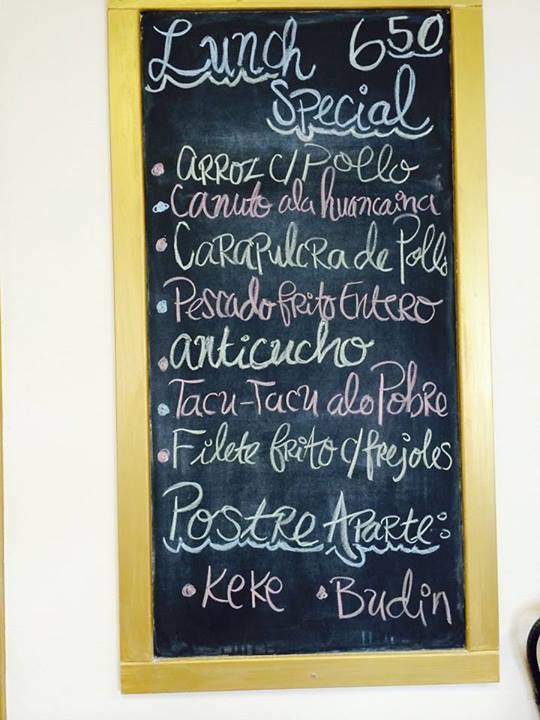 Lunch 6.50
Special
• Arroz c/Pollo
• Canuto ala huancaina
• Carapulcra de Pollo
• Pescado frito Entero
• anticucho
• Tacu-Tacu alo Pobre
• Filete frito c/frejoles
Postre Aparte:
• Keke • Budin